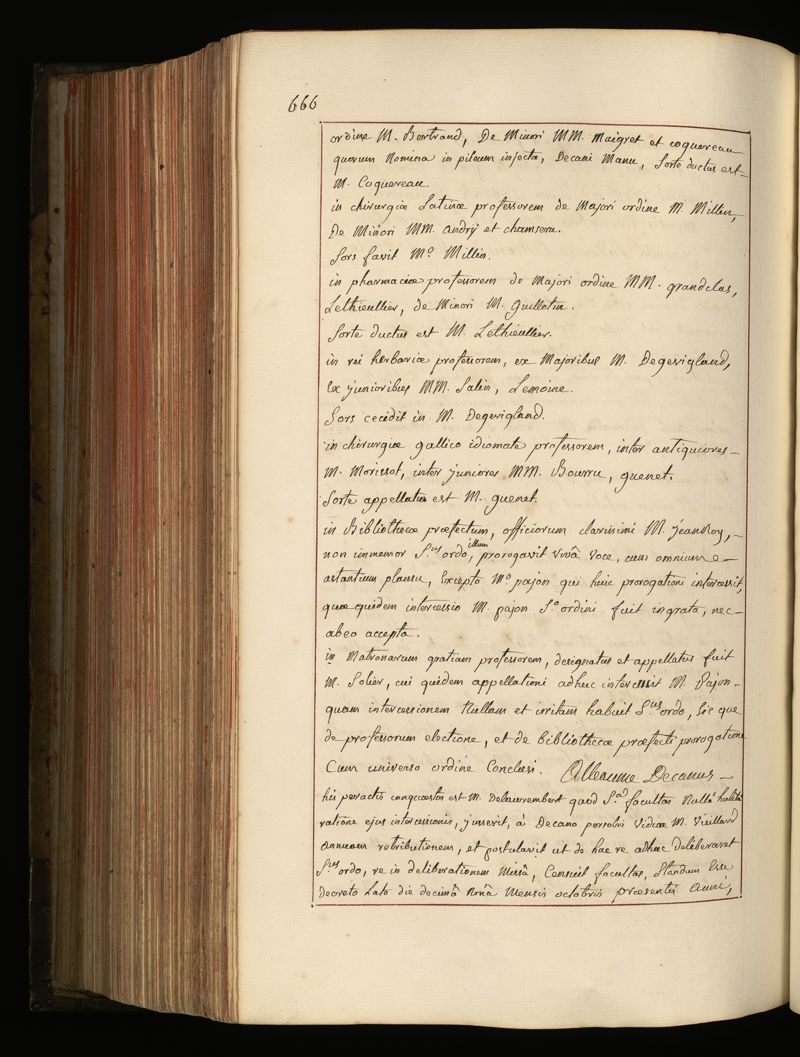 666
ordine M. Bertrand, De Minori MM. Maigret et coquereau
quorum Nomina in pileum injecta, Decani Manu, Sorte ductus est-
M. Coquereau
in chirurgiæ Latinæ professorem de Majori ordine M. Millin,
De Minori MM. andrÿ et chamseru.
Sors favit M.o Millin.
in pharmaciæ professorem de Majori ordine MM. grandclas,
Lethieullier, de Minori M. guillotin.
Sorte ductus est M. Lethieullier.
in rei herbariæ professorem, ex Majoribus M. Degevigland,
Ex junioribus MM. Salin, Lemoine.
Sors cecidit in M. Degevigland.
in chirurgiæ gallico idiomate professorem, inter antiquiores-
M. Morissot, inter juniores MM. Bourru, guenet.
Sorte appellatus est M. guenet.
in Bibliothecæ præfectum, officiorum clarissimi M. jeanRoy,-
non immemor S.us ordo, illum prorogavit vivâ voce, cum omnium e-
astantium plausu, Excepto M.o pajon qui huic prorogationi intercessit,
quæ quidem intercessio M. pajon S.o ordini fuit ingrata, nec-
abeo accepta.
in Matronarum gratiam professorem, designatus et appellatus fuit
M. Solier, cui quidem appellationi adhuc intercessit M. Pajon-
quam intercessionem Nullam et irritam habuit S.us ordo, Sic que
de professorum electione, et de bibliothecæ præfecti prorogatione
Cum universo ordine Conclusi. Alleaume Decanus-
his peractis conquæstus est M. Deleurrembert quod S.a facultas Nullâ habitâ
ratione ejus intercessionis, jusserit, à Decano persolvi Viduæ M. Vieillard
annuam retributionem, et postulavit ut de hac re adhuc deliberaret
S.us ordo, re in deliberationem Missâ, Censuit facultas, Standum Esse
Decreto Lato die decimâ Nonâ Mensis octobris præsentis anni,